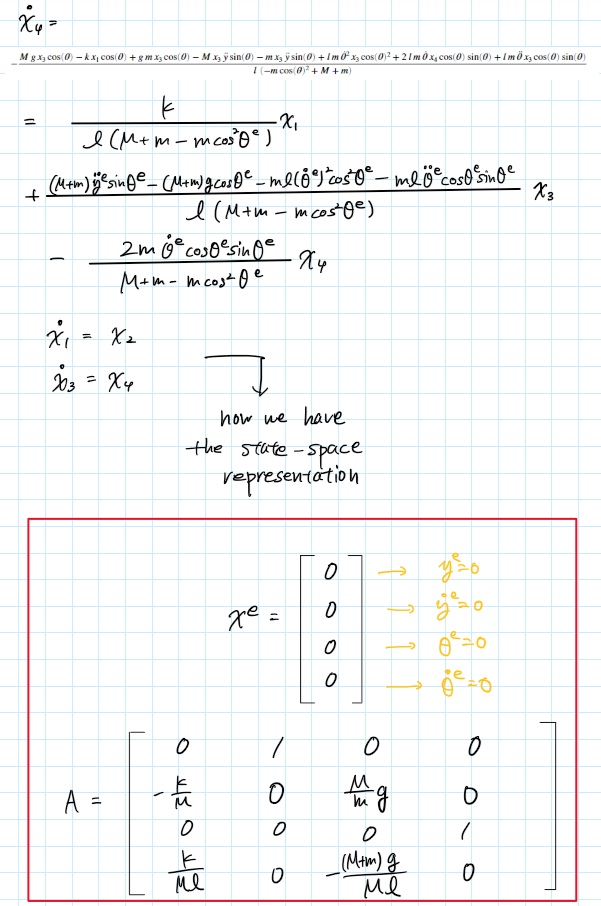 ẋ₄ =
-(M g x₃ cos(θ) − k x₁ cos(θ) + g m x₃ cos(θ) − M x₃ ÿ sin(θ) − m x₃ ÿ sin(θ) + l m θ̇² x₃ cos(θ)² + 2 l m θ̇ x₄ cos(θ) sin(θ) + l m θ̈ x₃ cos(θ) sin(θ)) / (l (−m cos(θ)² + M + m))
= k / (l (M+m − m cos²θᵉ)) x₁
+ ((M+m) ÿᵉ sinθᵉ − (M+m) g cosθᵉ − ml(θ̇ᵉ)² cos²θᵉ − ml θ̈ᵉ cosθᵉ sinθᵉ) / (l (M+m − m cos²θᵉ)) x₃
− (2m θ̇ᵉ cosθᵉ sinθᵉ) / (M+m − m cos²θᵉ) x₄
ẋ₁ = x₂
ẋ₃ = x₄
now we have
the state-space
representation
xᵉ = [0 0 0 0]
→ yᵉ=0
→ ẏᵉ=0
→ θᵉ=0
→ θ̇ᵉ=0
A =
0 1 0 0
-k/M 0 M/m g 0
0 0 0 1
k/Ml 0 -(M+m)g/Ml 0